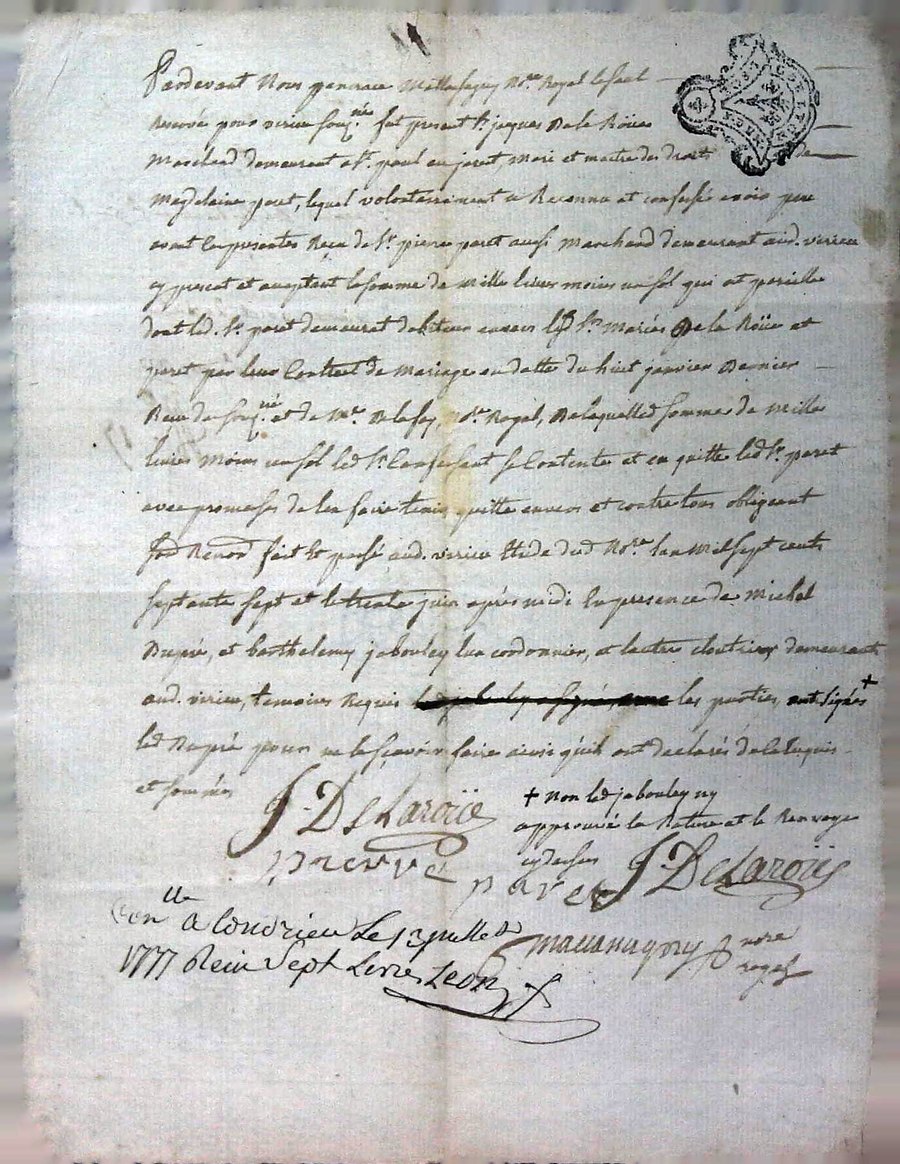 Pardevant Nous Nore. Royal le seul
Reservé pour virieu souq.né fut present Sr. jacques De la Roüe
Marchand demeurant a St. paul en jarret, Mari et maitre des droits de
Magdelaine paret, lequel volontairement a Reconnu et confessé avoir
avant les presentes Receu de Sr. pierre paret aussi Marchand demeurant aud. virieu
cy present et acceptant la somme de mille livres moins un sol qui est pareille
dont led. Sr. paret demeuret debiteur envers lesd Srs. Mariés De la Roüe et
paret par leur Contract de Mariage en datte du huit janvier Dernier
Receu du souq.né et de Me. Delafay, Nore. Royal, De laquelle d. somme de mille
livres moins un sol led Sr. Confessant se Contente et en quitte led Sr. paret
avec promesses de l'en faire tenir quitte envers et contre tous obligeant
fait et passé aud. virieu Etude dud Nore. l'an Mil sept cents
septante sept et le trente juin après midi En presence de Michel
Dupré, et barthelemy jabouley l'un cordonnier, et l'autre cloutier demeurants
aud. virieu, temoins Requis les parties, ont signés +
led Dupré pour ne le sçavoir faire ainsi qu'ils ont declarés de ce Enquis
et sommés
J. DeLaroüe
+ non led jabouley ny
approuvé la Rature et le Renvoye
cy dessus J. DeLaroüe
pierre paret
Conlle a Condrieu Le 13 juillet
1777 Reçu Sept Livres Leon
nore
royal